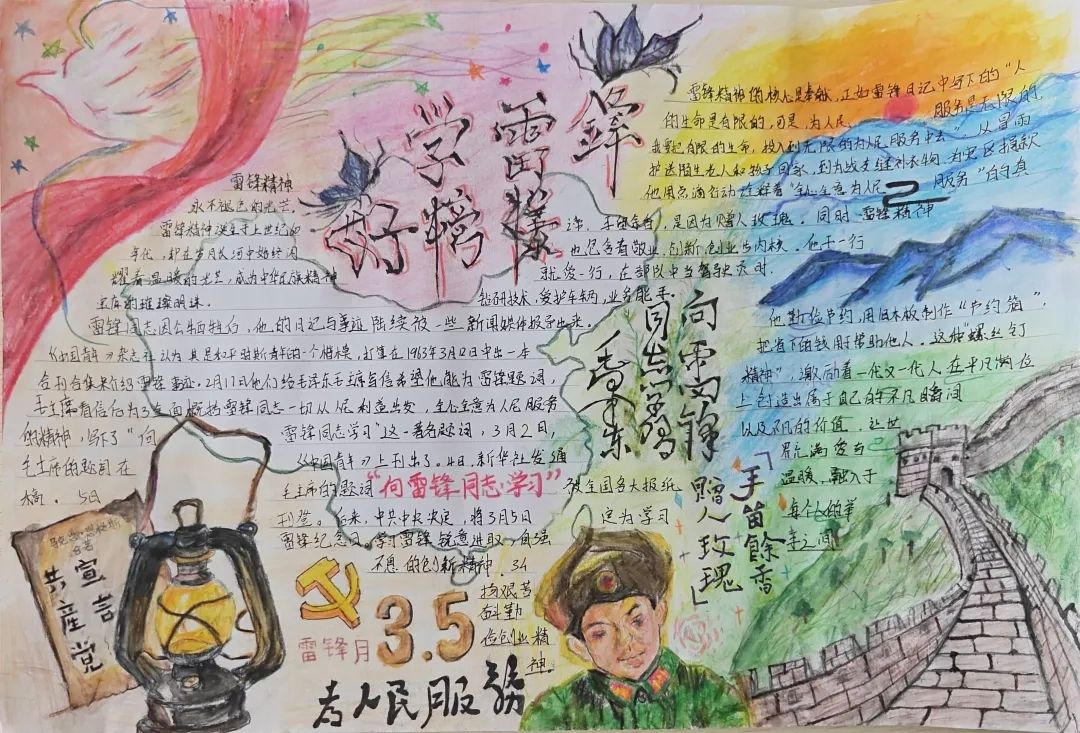 学雷锋
好榜样
雷锋精神
永不褪色的光芒,
雷锋精神诞生于上世纪
年代,却在岁月长河中始终闪
耀着温暖的光芒,成为中华民族精神
宝库的璀璨明珠.
雷锋同志因公牺牲后,他的日记与事迹陆续被一些新闻媒体报导出来.
《中国青年》杂志社认为其是和平时期青年的一个榜样,打算在1963年3月2日出一本
合刊合集来介绍雷锋事迹.2月17日他们给毛泽东主席写信希望他能为雷锋题词,
毛主席看信后为3全面概括雷锋同志一切从人民利益出发,全心全意为人民服务
的精神,写下了"向
雷锋同志学习"这一著名题词,3月2日,
毛主席的题词在
《中国青年》上刊出了.4日,新华社发通
稿.5日
毛主席的题词"向雷锋同志学习"被全国各大报纸
刊登。后来,中共中央决定,将3月5日
定为学习
雷锋纪念日,学习雷锋锐意进取,自强
不息的创新精神.34
扬艰苦
奋斗勤
俭创业精
神.
雷锋精神的核心是奉献,正如雷锋日记中写下的"人
的生命是有限的,可是,为人民
服务是无限的,
我要把有限的生命,投入到无限的为人民服务中去".从冒雨
护送陌生老人和孩子回家,到为战友缝补衣物,为灾区捐款
他用点滴行动诠释着"全心全意为人民
服务"的真
谛.手留余香,是因为赠人玫瑰.同时雷锋精神
也包含着敬业,创新创业的内核.他干一行
就爱一行,在部队中当驾驶员时.
钻研技术,爱护车辆,业务能手.
他勤俭节约,用旧木板制作"节约箱",
把省下的钱用帮助他人.这种"螺丝钉
精神",激励着一代又一代人在平凡岗位
上创造出属于自己的不凡瞬间
以及不凡的价值.让世
界充满爱与
温暖,融入于
每个人的举
手之间
向雷锋
同志学习
毛泽东
「手留餘香
赠人玫瑰」
共產党
宣言
雷锋月
3.5
为人民服務